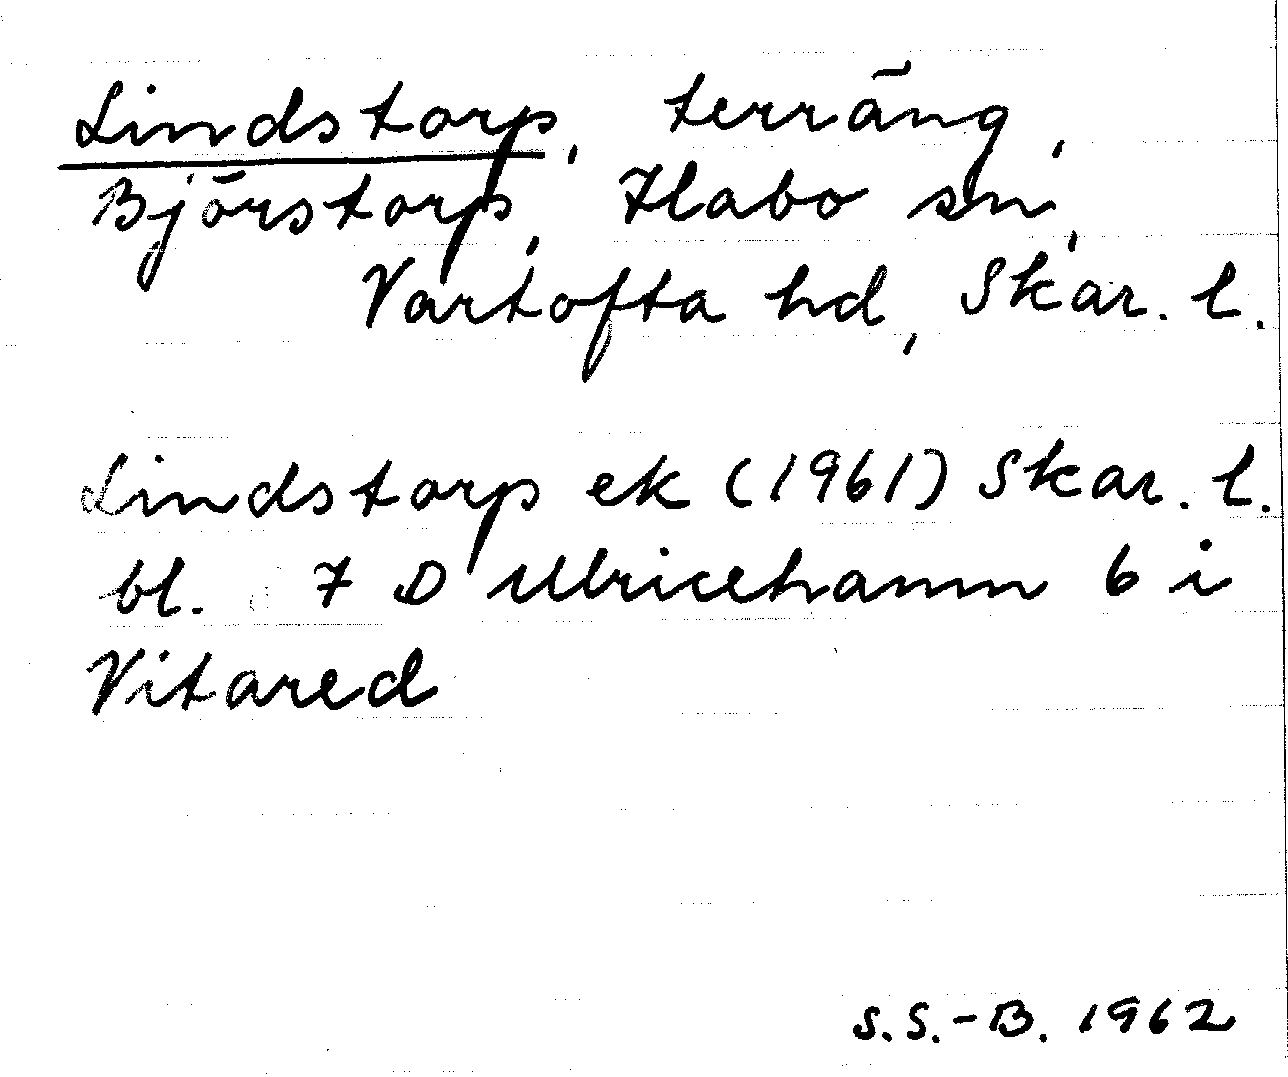 Lindstorp, terräng,
Björstorp, Habo sn,
Vartofta hd, Skar. l.
Lindstorp ek (1961) Skar. l.
bl. 7 D Ulricehamn 6 i
Vitared
S.S.-B. 1962